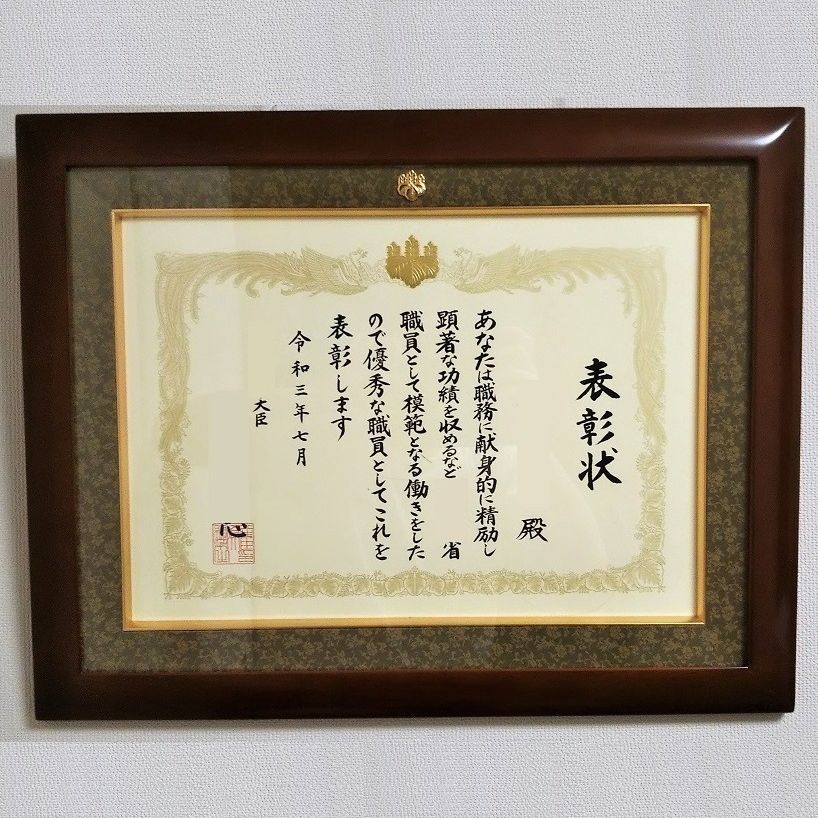 表彰状
殿
あなたは職務に献身的に精励し
顕著な功績を収めるなど 省
職員として模範となる働きをした
ので優秀な職員としてこれを
表彰します
令和三年七月
大臣
心